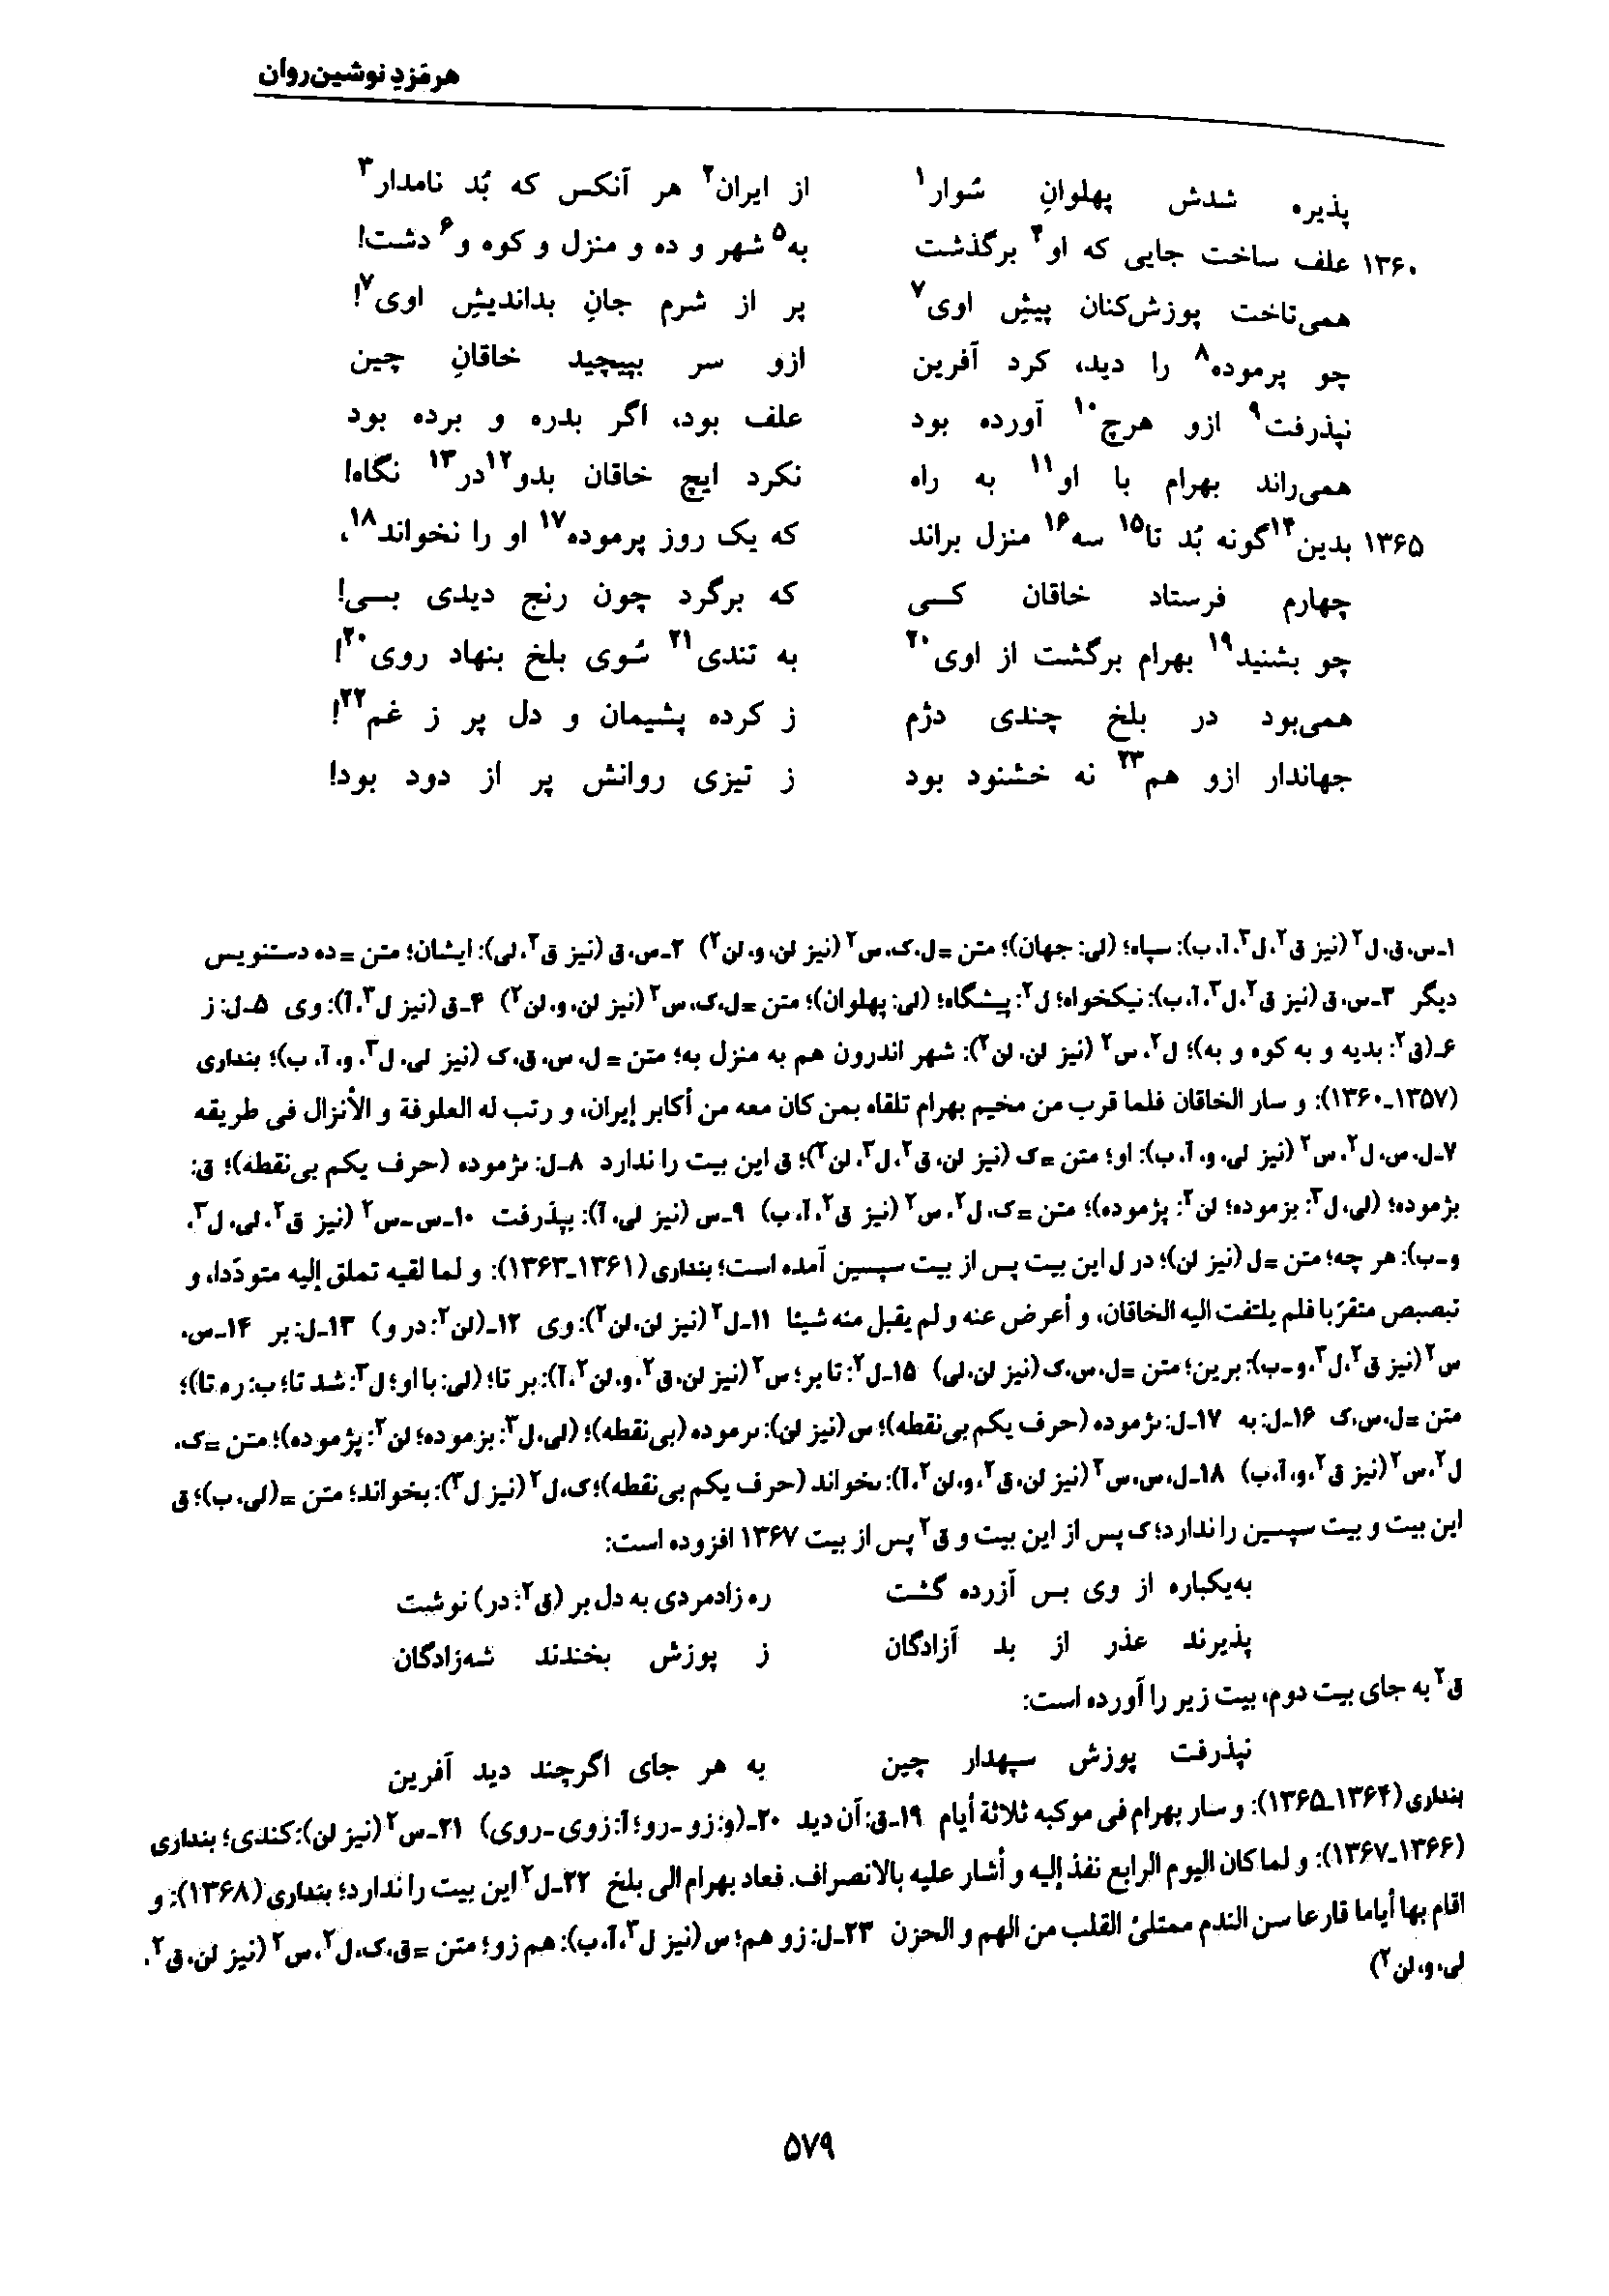 هرمَزدِ نوشین‌روان
پذیره شدش پهلوانِ سُوار۱ از ایران۲ هر آنکس که بُد نامدار۳
۱۳۶۰ علف ساخت جایی که او۴ برگذشت به۵ شهر و ده و منزل و کوه و۶ دشت!
همی‌تاخت پوزش‌کنان پیشِ اوی۷ پر از شرم جانِ بداندیشِ اوی۷!
چو پرموده۸ را دید، کرد آفرین ازو سر بپیچید خاقانِ چین
نپذرفت۹ ازو هرچ۱۰ آورده بود علف بود، اگر بدره و برده بود
همی‌راند بهرام با او۱۱ به راه نکرد ایچ خاقان بدو۱۲در۱۳ نگاه!
۱۳۶۵ بدین۱۴گونه بُد تا۱۵ سه۱۶ منزل براند که یک روز پرموده۱۷ او را نخواند۱۸،
چهارم فرستاد خاقان کسی که برگرد چون رنج دیدی بسی!
چو بشنید۱۹ بهرام برگشت از اوی۲۰ به تندی۲۱ سُوی بلخ بنهاد روی۲۰!
همی‌بود در بلخ چندی دژم ز کرده پشیمان و دل پر ز غم۲۲!
جهاندار ازو هم۲۳ نه خشنود بود ز تیزی روانش پر از دود بود!
۱ـ س، ق، ل۲ (نیز ق۲، ل۳، آ، ب): سپاه؛ (لی: جهان)؛ متن = ل، ک، س۲ (نیز لن، و، لن۲) ۲ـ س، ق (نیز ق۲، لی): ایشان؛ متن = ده دستنویس
دیگر ۳ـ س، ق (نیز ق۲، ل۳، آ، ب): نیکخواه؛ ل۲: پیشگاه؛ (لی: پهلوان)؛ متن = ل، ک، س۲ (نیز لن، و، لن۲) ۴ـ ق (نیز ل۳، آ): وی ۵ـ ل: ز
۶ـ (ق۲: بدیه و به کوه و به)؛ ل۲، س۲ (نیز لن، لن۲): شهر اندرون هم به منزل به؛ متن = ل، س، ق، ک (نیز لی، ل۳، و، آ، ب)؛ بنداری
(۱۳۵۷ـ۱۳۶۰): و سار الخاقان فلما قرب من مخیم بهرام تلقاه بمن کان معه من أکابر إیران، و رتب له العلوفة و الأنزال فی طریقه
۷ـ ل، س، ل۲، س۲ (نیز لی، و، آ، ب): او؛ متن = ک (نیز لن، ق۲، ل۳، لن۲)؛ ق این بیت را ندارد ۸ـ ل: ٮژموده (حرف یکم بی‌نقطه)؛ ق:
بژموده؛ (لی، ل۳: بزموده؛ لن۲: پژموده)؛ متن = ک، ل۲، س۲ (نیز ق۲، آ، ب) ۹ـ س (نیز لی، آ): بپذرفت ۱۰ـ س ـ س۲ (نیز ق۲، لی، ل۳،
و ـ ب): هر چه؛ متن = ل (نیز لن)؛ در ل این بیت پس از بیت سپسین آمده است؛ بنداری (۱۳۶۱ـ۱۳۶۳): و لما لقیه تملق إلیه متودّدا، و
تبصبص متقرّبا فلم یلتفت الیه الخاقان، و أعرض عنه و لم یقبل منه شیئا ۱۱ـ ل۲ (نیز لن، لن۲): وی ۱۲ـ (لن۲: در و) ۱۳ـ ل: بر ۱۴ـ س،
س۲ (نیز ق۲، ل۳، و ـ ب): برین؛ متن = ل، س، ک (نیز لن، لی) ۱۵ـ ل۲: تا بر؛ س۲ (نیز لن، ق۲، و، لن۲، آ): بر تا؛ (لی: با او؛ ل۳: شد تا؛ ب: ره تا)؛
متن = ل، س، ک ۱۶ـ ل: به ۱۷ـ ل: ٮژموده (حرف یکم بی‌نقطه)؛ س (نیز لن): ٮرموده (بی‌نقطه)؛ (لی، ل۳: بزموده؛ لن۲: پژموده)؛ متن = ک،
ل۲، س۲ (نیز ق۲، و، آ، ب) ۱۸ـ ل، س، س۲ (نیز لن، ق۲، و، لن۲، آ): ٮخواند (حرف یکم بی‌نقطه)؛ ک، ل۲ (نیز ل۳): بخواند؛ متن = (لی، ب)؛ ق
این بیت و بیت سپسین را ندارد؛ ک پس از این بیت و ق۲ پس از بیت ۱۳۶۷ افزوده است:
به‌یکباره از وی بس آزرده گشت ره زادمردی به دل بر (ق۲: در) نوشت
پذیرند عذر از بد آزادگان ز پوزش بخندند شه‌زادگان
ق۲ به جای بیت دوم، بیت زیر را آورده است:
نپذرفت پوزش سپهدار چین به هر جای اگرچند دید آفرین
بنداری (۱۳۶۴ـ۱۳۶۵): و سار بهرام فی موکبه ثلاثة أیام ۱۹ـ ق: آن دید ۲۰ـ (و: زو ـ رو؛ آ: زوی ـ روی) ۲۱ـ س۲ (نیز لن): کندی؛ بنداری
(۱۳۶۶ـ۱۳۶۷): و لما کان الیوم الرابع نفذ إلیه و أشار علیه بالانصراف. فعاد بهرام الی بلخ ۲۲ـ ل۲ این بیت را ندارد؛ بنداری (۱۳۶۸): و
اقام بها أیاما قارعا سن الندم ممتلئ القلب من الهم و الحزن ۲۳ـ ل: زو هم؛ س (نیز ل۳، آ، ب): هم زو؛ متن = ق، ک، ل۲، س۲ (نیز لن، ق۲،
لی، و، لن۲)
۵۷۹